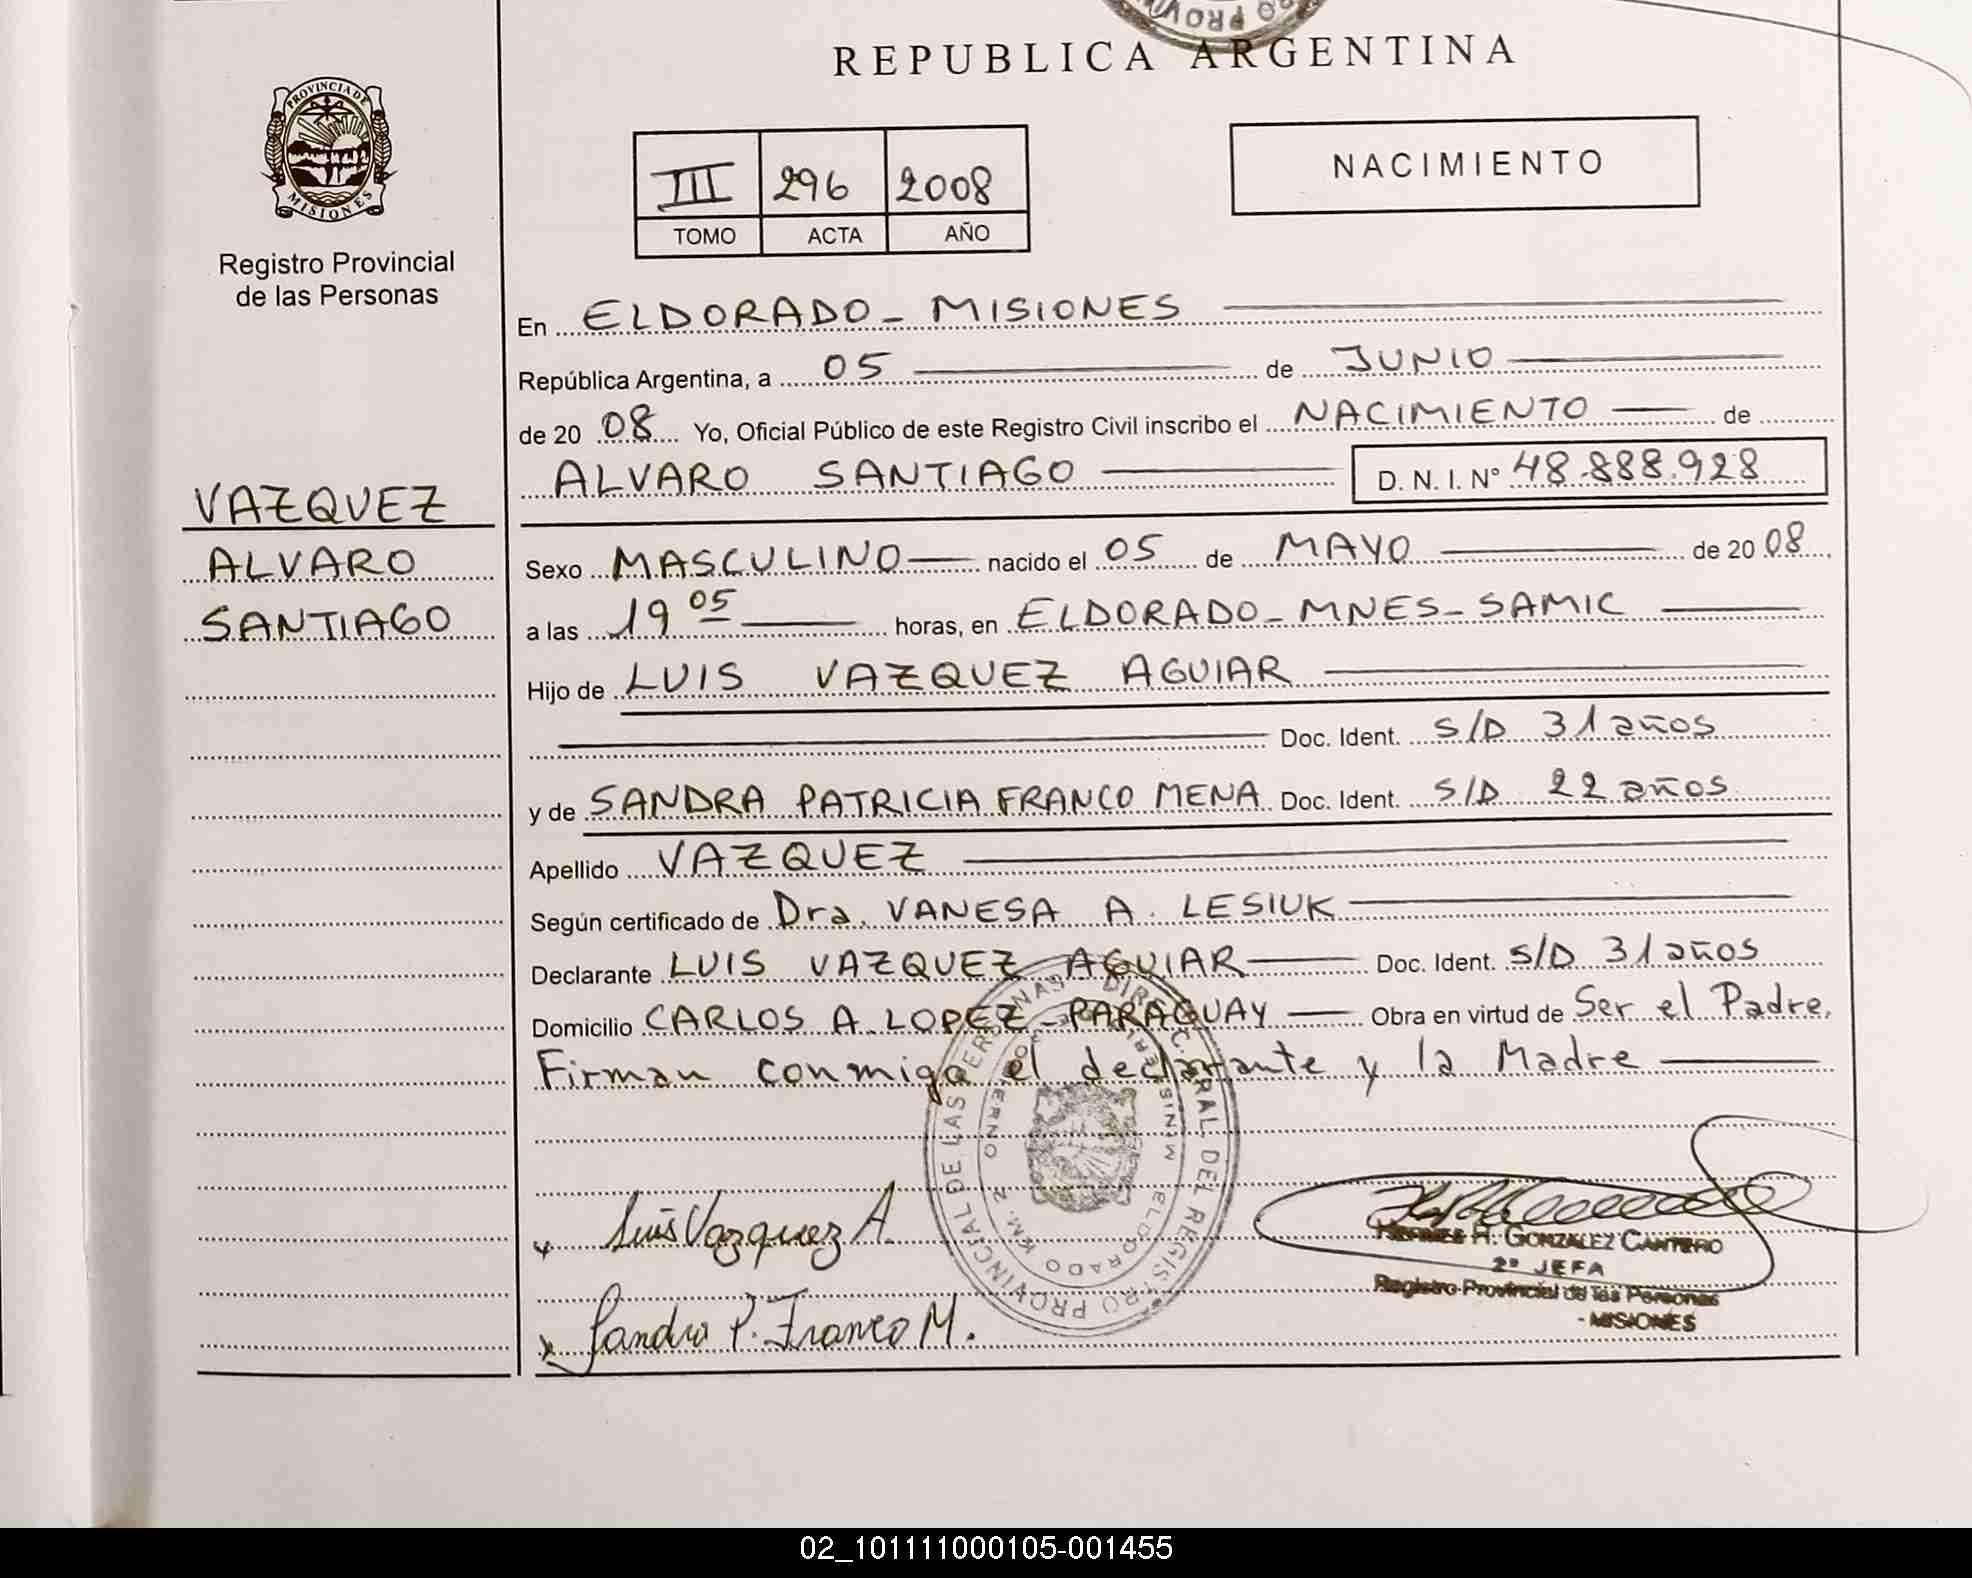 REPUBLICA ARGENTINA
PROVINCIA DE
MISIONES
Registro Provincial
de las Personas
III 296 2008
TOMO ACTA AÑO
NACIMIENTO
En ELDORADO - MISIONES
República Argentina, a 05 de JUNIO
de 20 08 Yo, Oficial Público de este Registro Civil inscribo el NACIMIENTO de
ALVARO SANTIAGO D. N. I. Nº 48.888.928
VAZQUEZ
ALVARO
SANTIAGO
Sexo MASCULINO nacido el 05 de MAYO de 20 08
a las 19 05 horas, en ELDORADO - MNES - SAMIC
Hijo de LUIS VAZQUEZ AGUIAR
Doc. Ident. S/D 31 años
y de SANDRA PATRICIA FRANCO MENA Doc. Ident. S/D 22 años
Apellido VAZQUEZ
Según certificado de Dra. VANESA A. LESIUK
Declarante LUIS VAZQUEZ AGUIAR Doc. Ident. S/D 31 años
Domicilio CARLOS A. LOPEZ - PARAGUAY Obra en virtud de Ser el Padre,
Firman conmigo el declarante y la Madre
Luis Vazquez A.
Sandra P. Franco M.
H. GONZALEZ CANTERO
2º JEFA
Registro Provincial de las Personas
- MISIONES
02_101111000105-001455